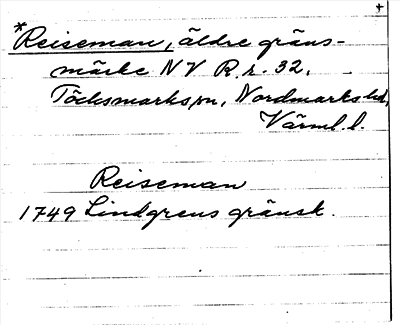 *Reiseman, äldre gräns-
märke NV R.r. 32,
Töcksmarks sn, Nordmarks hd,
Värml. l.
Reiseman
1749 Lindgrens gränsk.